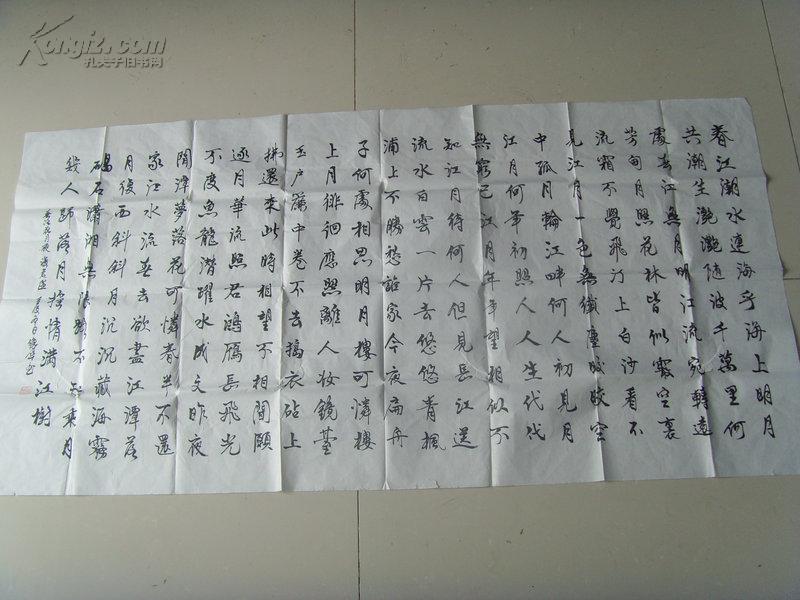 春江潮水連海平海上明月
共潮生灧灧隨波千萬里何
處春江無月明江流宛轉遶
芳甸月照花林皆似霰空裏
流霜不覺飛汀上白沙看不
見江月一色無纖塵皎皎空
中孤月輪江畔何人初見月
江月何年初照人人生代代
無窮已江月年年望相似不
知江月待何人但見長江送
流水白雲一片去悠悠青楓
浦上不勝愁誰家今夜扁舟
子何處相思明月樓可憐樓
上月徘徊應照離人妝鏡臺
玉戶簾中卷不去搗衣砧上
拂還來此時相望不相聞願
逐月華流照君鴻雁長飛光
不度魚龍潛躍水成文昨夜
閒潭夢落花可憐春半不還
家江水流春去欲盡江潭落
月復西斜斜月沉沉藏海霧
碣石瀟湘無限路不知乘月
幾人歸落月搖情滿江樹
春江花月夜
Kongfz.com
孔夫子旧书网